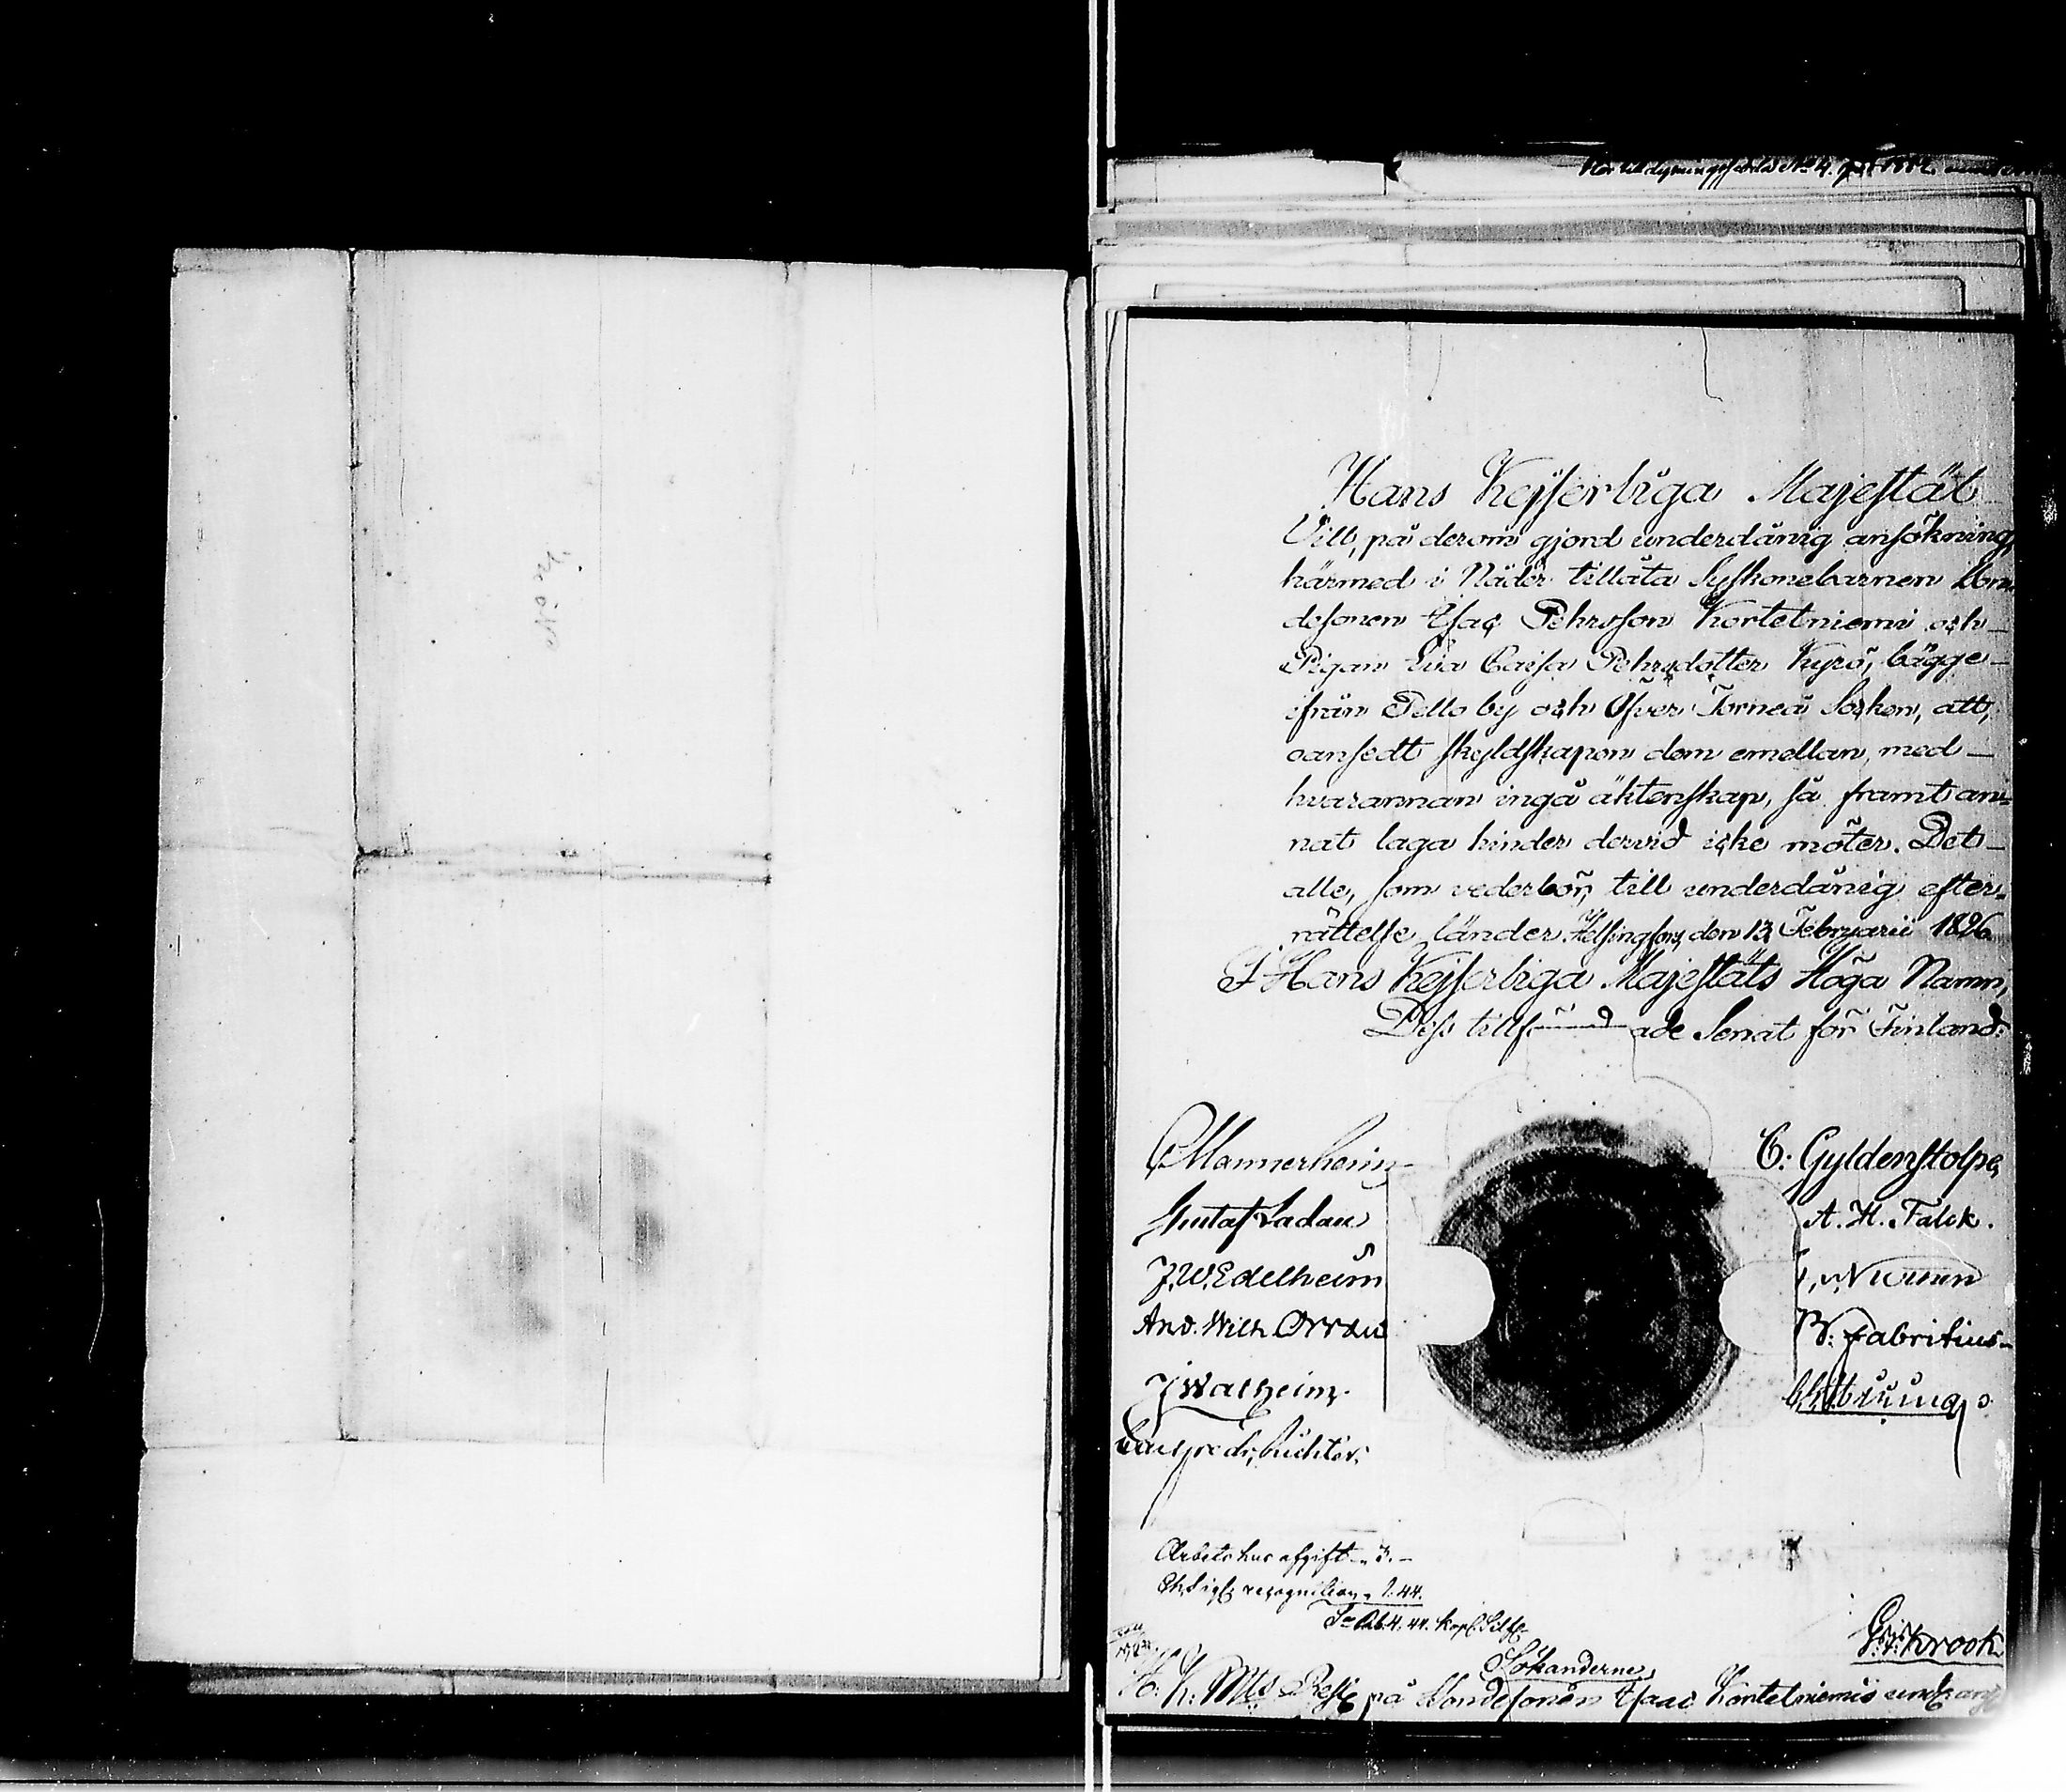 Hans Kejserliga Majestät
Vill, på derom gjord underdånig ansökning,
härmed i Nåder tillåta Syskonebarnen Bon-
desonen Isac Pehrsson Kortetniemi och
Pigan Eva Caisa Pehrsdotter Kyrö, bägge
från Pello by och Öfver Torneå Socken, att,
oansedt skyldskapen dem emellan, med
hvarannan ingå äktenskap, så framt an-
nat laga hinder dervid icke möter. Det
alle, som vederbör, till underdånig efter-
rättelse länder. Helsingfors, den 13 Februarii 1826
I Hans Kejserliga Majestäts Höga Namn,
Dess tillförordnade Senat för Finland:
C Mannerheim
C. Gyldenstolpe
Gustaf Ladau
A. H. Falck.
J. W. Edelheim
And. Wilh. Orræus
W. Fabritius
J Walheim.
Carl Fredr. Richter.
Arbetshus afgift " 3. -
Ch. Sigs recognition " 1: 44.
S:a Rub. 4. 44. kop. Silf
G: Krook
Sökanderne
H: K: Mts Resl. på Bondesonen Isaac Kortetniemis und. ans